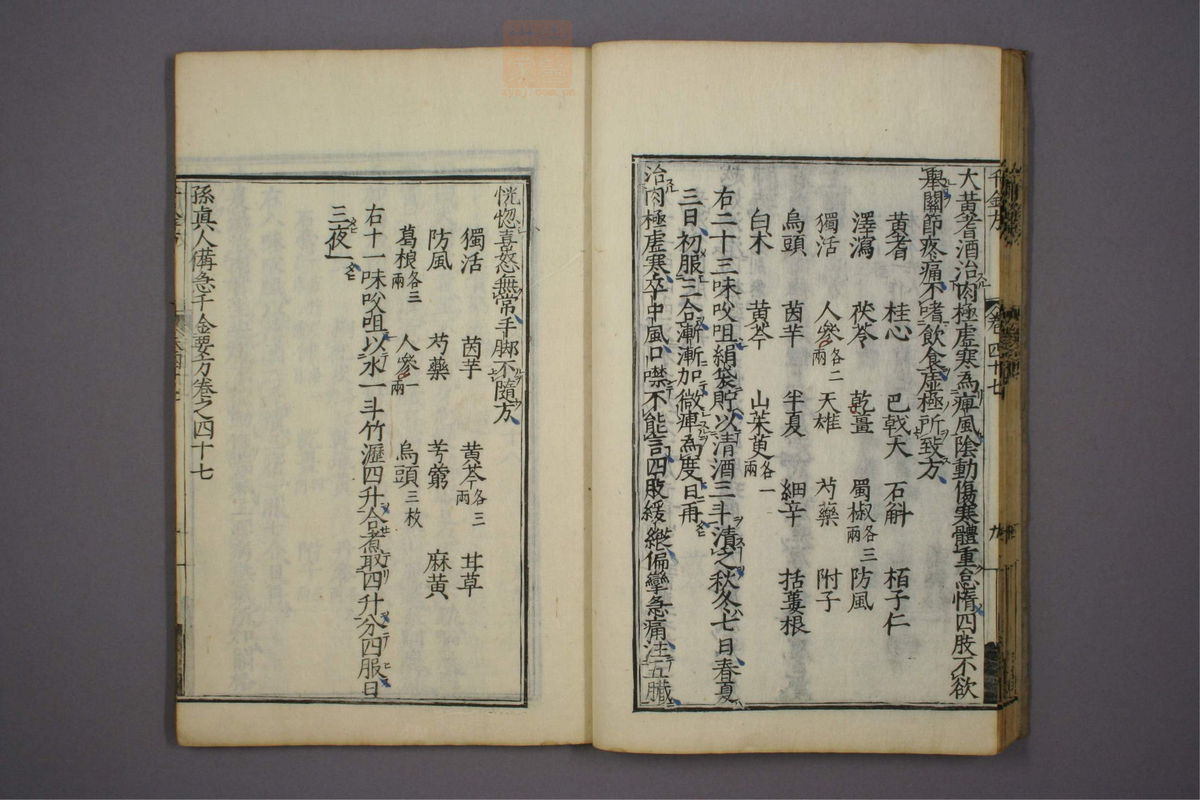 大黄耆酒治肉極虛寒為痺風陰動傷寒體重怠惰四肢不欲
舉關節疼痛不嗜飲食虛極所致方
黄耆 桂心 巴戟天 石斛 栢子仁
澤瀉 茯苓 乾薑 蜀椒各三兩 防風
獨活 人參各二兩 天雄 芍藥 附子
烏頭 茵芋 半夏 細辛 括蔞根
白木 黄芩 山茱萸各一兩
右二十三味㕮咀絹袋貯以清酒三斗漬之秋冬七日春夏
三日初服三合漸漸加微痺為度日再
治肉極虛寒卒中風口噤不能言四肢緩縱偏攣急痛注五臟
恍惚喜怒無常手脚不隨方
獨活 茵芋 黄芩各三兩 甘草
防風 芍藥 芎藭 麻黄
葛根各三兩 人參一兩 烏頭三枚
右十一味㕮咀以水一斗竹瀝四升合煮取四升分四服日
三夜一
孫真人備急千金要方卷之四十七
千金方 卷四十七 九